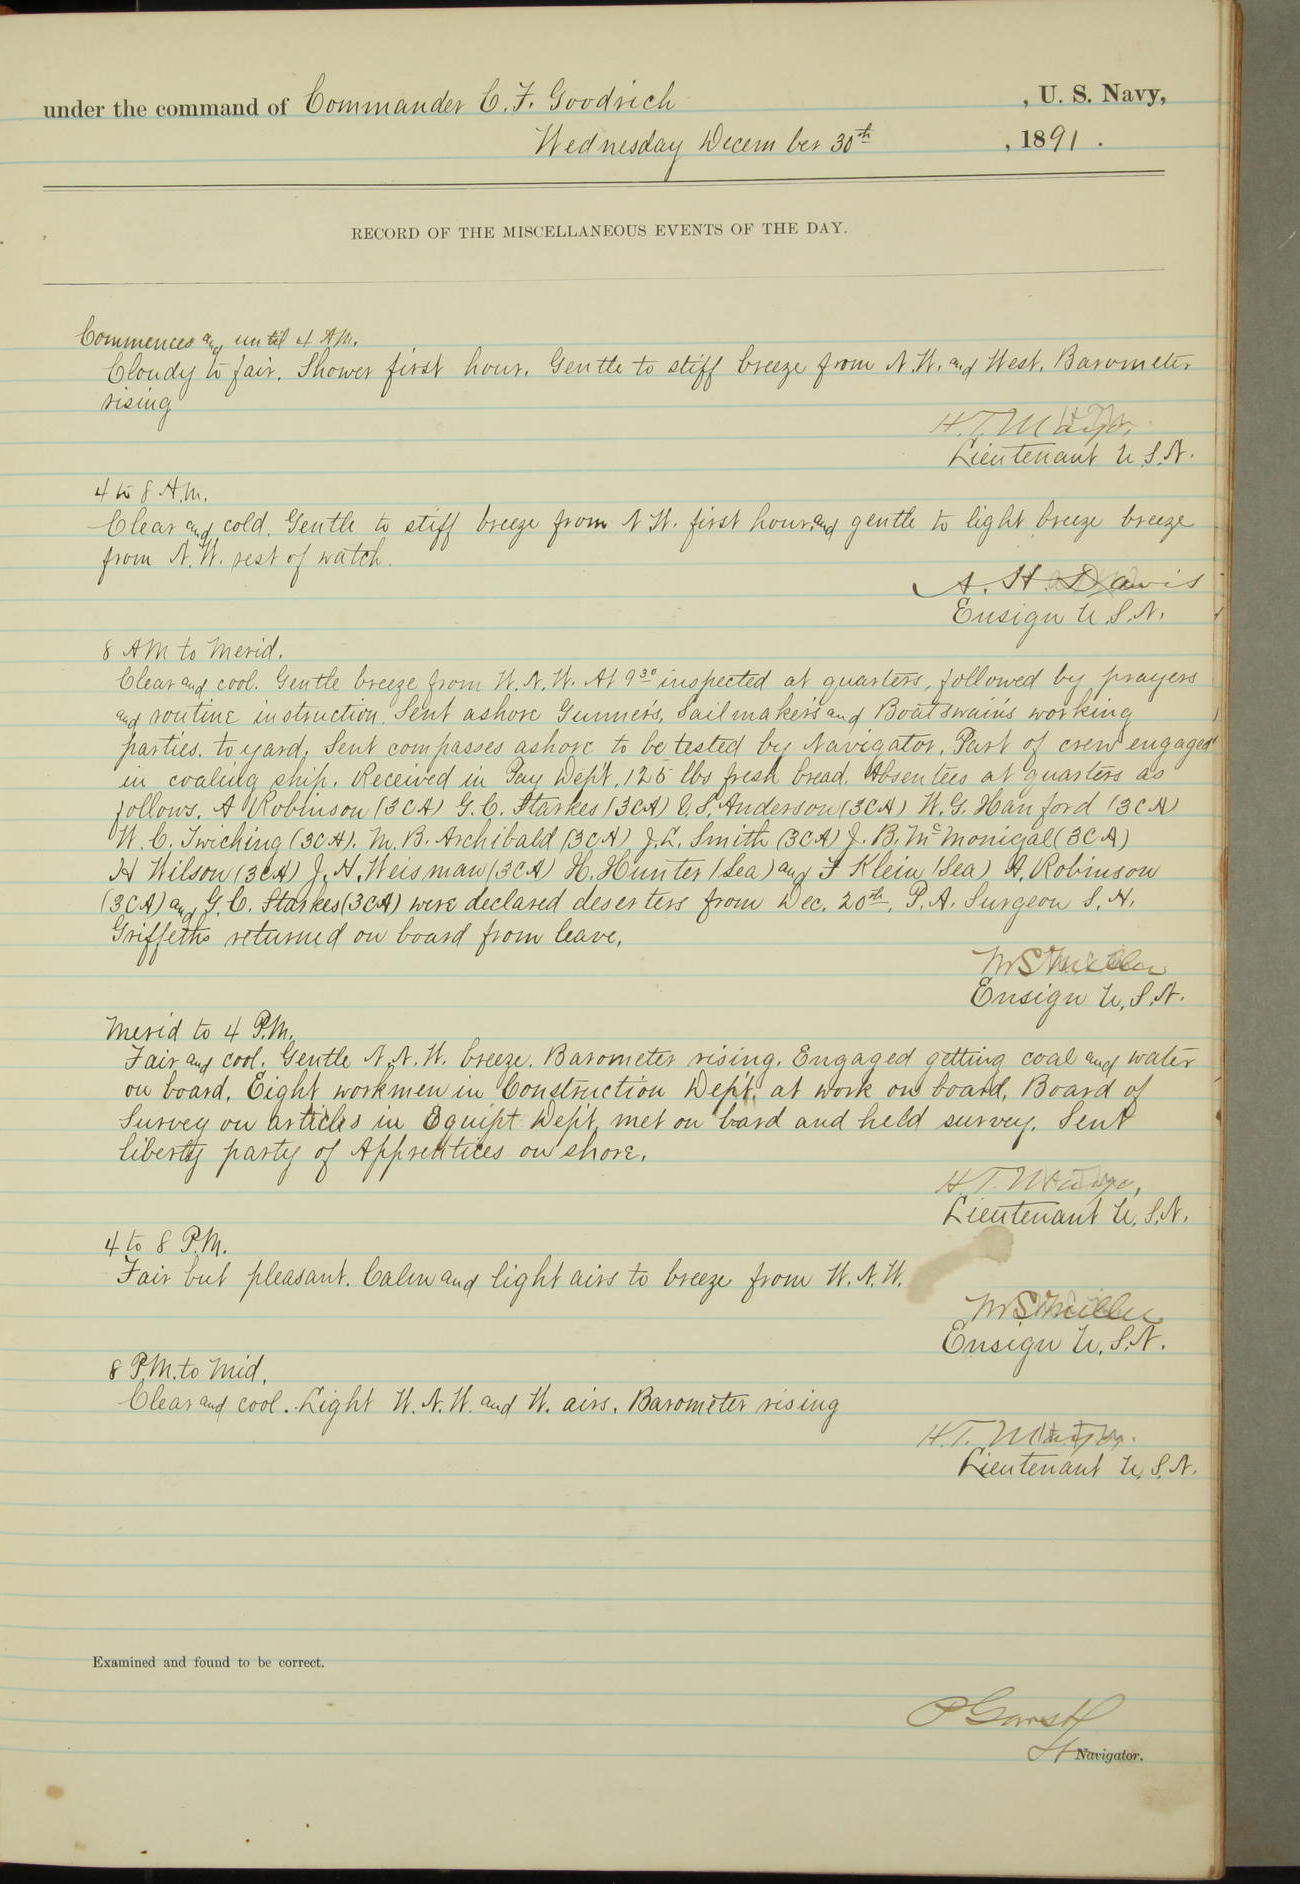 under the command of Commander C. F. Goodrich , U. S. Navy,
Wednesday December 30th , 1891 .
RECORD OF THE MISCELLANEOUS EVENTS OF THE DAY.
Commences and until 4 A.M.
Cloudy to fair. Shower first hour. Gentle to stiff breeze from N.W. and West. Barometer
rising
H. T. Mayo.
Lieutenant U.S.N.
4 to 8 A.M.
Clear and cold. Gentle to stiff breeze from N.W. first hour, and gentle to light breeze breeze
from N.W. rest of watch.
A. H. Davis
Ensign U.S.N.
8 AM to Merid.
Clear and cool. Gentle breeze from W.N.W. At 9 30 inspected at quarters, followed by prayers
and routine instruction. Sent ashore Gunner's, Sailmaker's and Boatswain's working
parties. to yard. Sent compasses ashore to be tested by Navigator. Part of crew engaged
in coaling ship. Received in Pay Dep't, 125 lbs fresh bread. Absentees at quarters as
follows. A Robinson (3CA) G. C. Starkes (3CA) C. S. Anderson (3CA) W. G. Hanford (3CA)
W. C. Twiching (3CA). M. B. Archibald (3CA) J. L. Smith (3CA) J. B. McMonigal (3CA)
H Wilson (3CA) J. H. Weisman (3CA) H. Hunter (Sea) and F Klein (Sea) A. Robinson
(3CA) and G. C. Starkes (3CA) were declared deserters from Dec. 20th. P. A. Surgeon S. H.
Griffeths returned on board from leave.
Ensign U.S.N.
Merid to 4 P.M.
Fair and cool. Gentle N.N.W. breeze. Barometer rising. Engaged getting coal and water
on board. Eight workmen in Construction Dep't. at work on board. Board of
Survey on articles in Equipt Dep't, met on bard and held survey. Sent
liberty party of Apprentices on shore.
H. T. Mayo,
Lieutenant U.S.N.
4 to 8 P.M.
Fair but pleasant. Calm and light airs to breeze from W.N.W.
Ensign U.S.N.
8 P.M. to Mid.
Clear and cool. Light W.N.W. and W. airs. Barometer rising
H. T. Mayo.
Lieutenant U.S.N.
Examined and found to be correct.
P Garst
Lt Navigator.